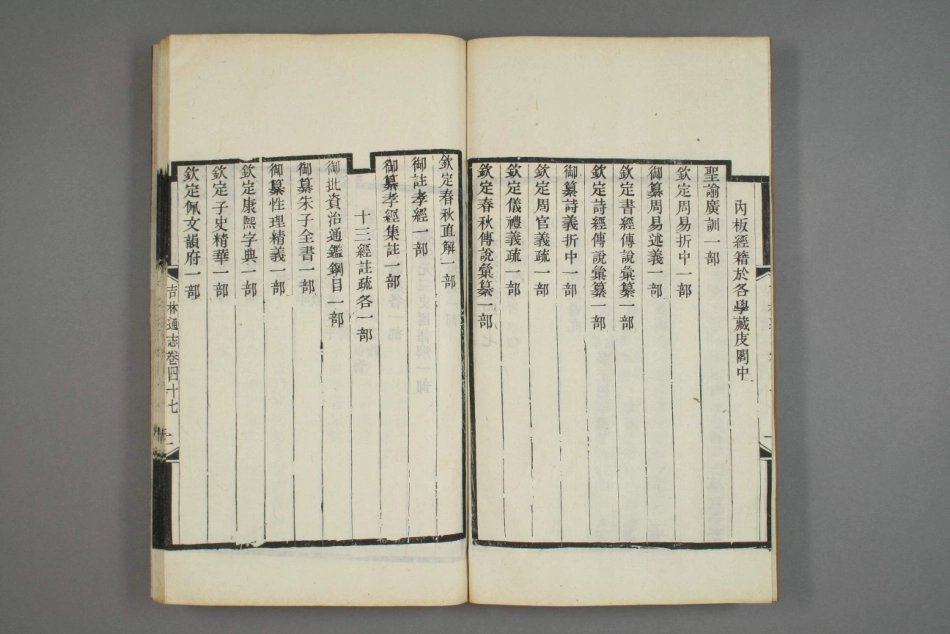 內板經籍於各學藏庋閣中
聖諭廣訓一部
欽定周易折中一部
御纂周易述義一部
欽定書經傳說彙纂一部
欽定詩經傳說彙纂一部
御纂詩義折中一部
欽定周官義疏一部
欽定儀禮義疏一部
欽定春秋傳說彙纂一部
欽定春秋直解一部
御註孝經一部
御纂孝經集註一部
十三經註疏各一部
御批資治通鑑綱目一部
御纂朱子全書一部
御纂性理精義一部
欽定康熙字典一部
欽定子史精華一部
欽定佩文韻府一部
吉林通志卷四十七
二